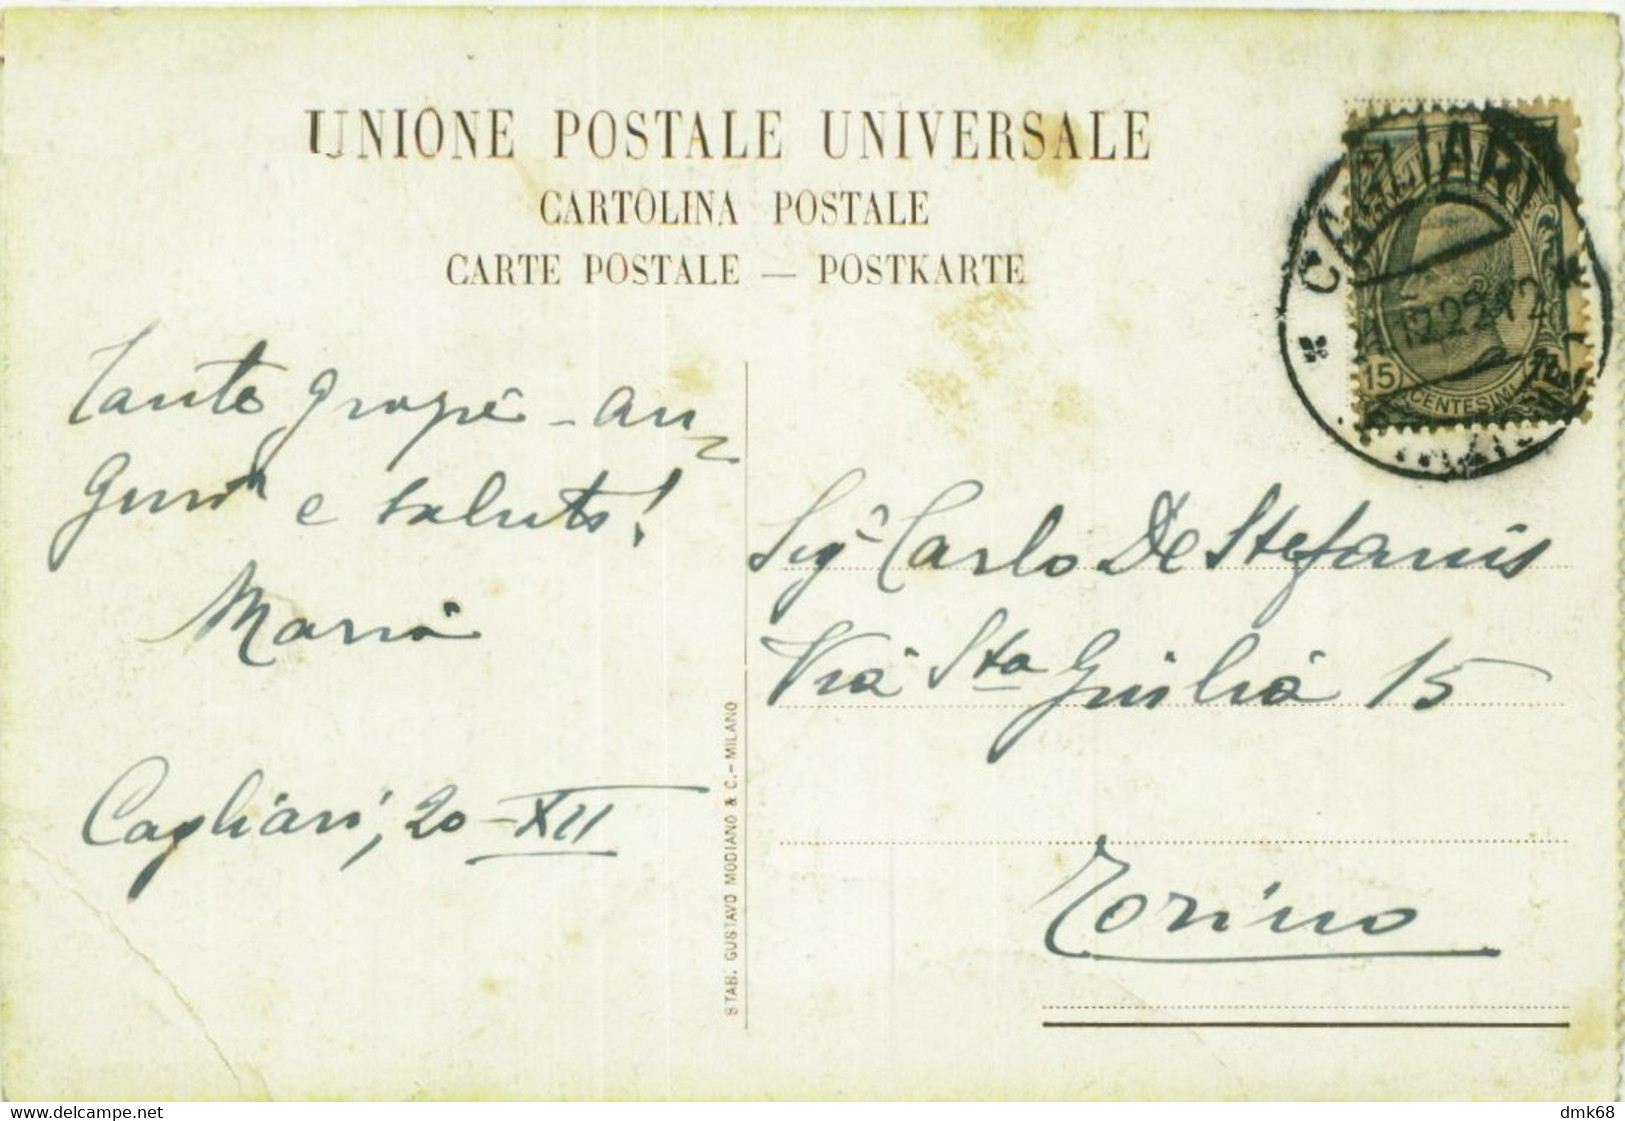 UNIONE POSTALE UNIVERSALE
CARTOLINA POSTALE
CARTE POSTALE — POSTKARTE
CAGLIARI
15
CENTESIMI
Tante grazie - au=
guri e saluti!
Maria
Cagliari, 20-XII
Sigr Carlo De Stefanis
Via Sta Giulia 15
Torino
STAB. GUSTAVO MODIANO & C. - MILANO
www.delcampe.net
dmk68